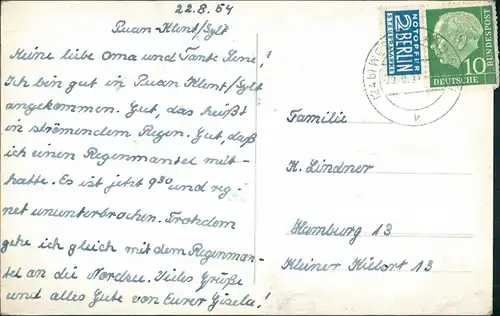 22.8.54
Puan Klent/Sylt
Meine liebe Oma und Tante Lene!
Ich bin gut in Puan Klent/Sylt
angekommen. Gut, das heißt
in strömendem Regen. Gut, daß
ich einen Regenmantel mit-
hatte. Es ist jetzt 9³⁰ und reg-
net ununterbrochen. Trotzdem
gehe ich gleich mit dem Regenman-
tel an die Nordsee. Viele Grüße
und alles Gute von Eurer Gisela!
NOTOPFER
2 BERLIN
STEUERMARKE
DEUTSCHE
BUNDESPOST
10
(24b) W
k
Familie
K. Lindner
Hamburg 13
Kleiner Kielort 13